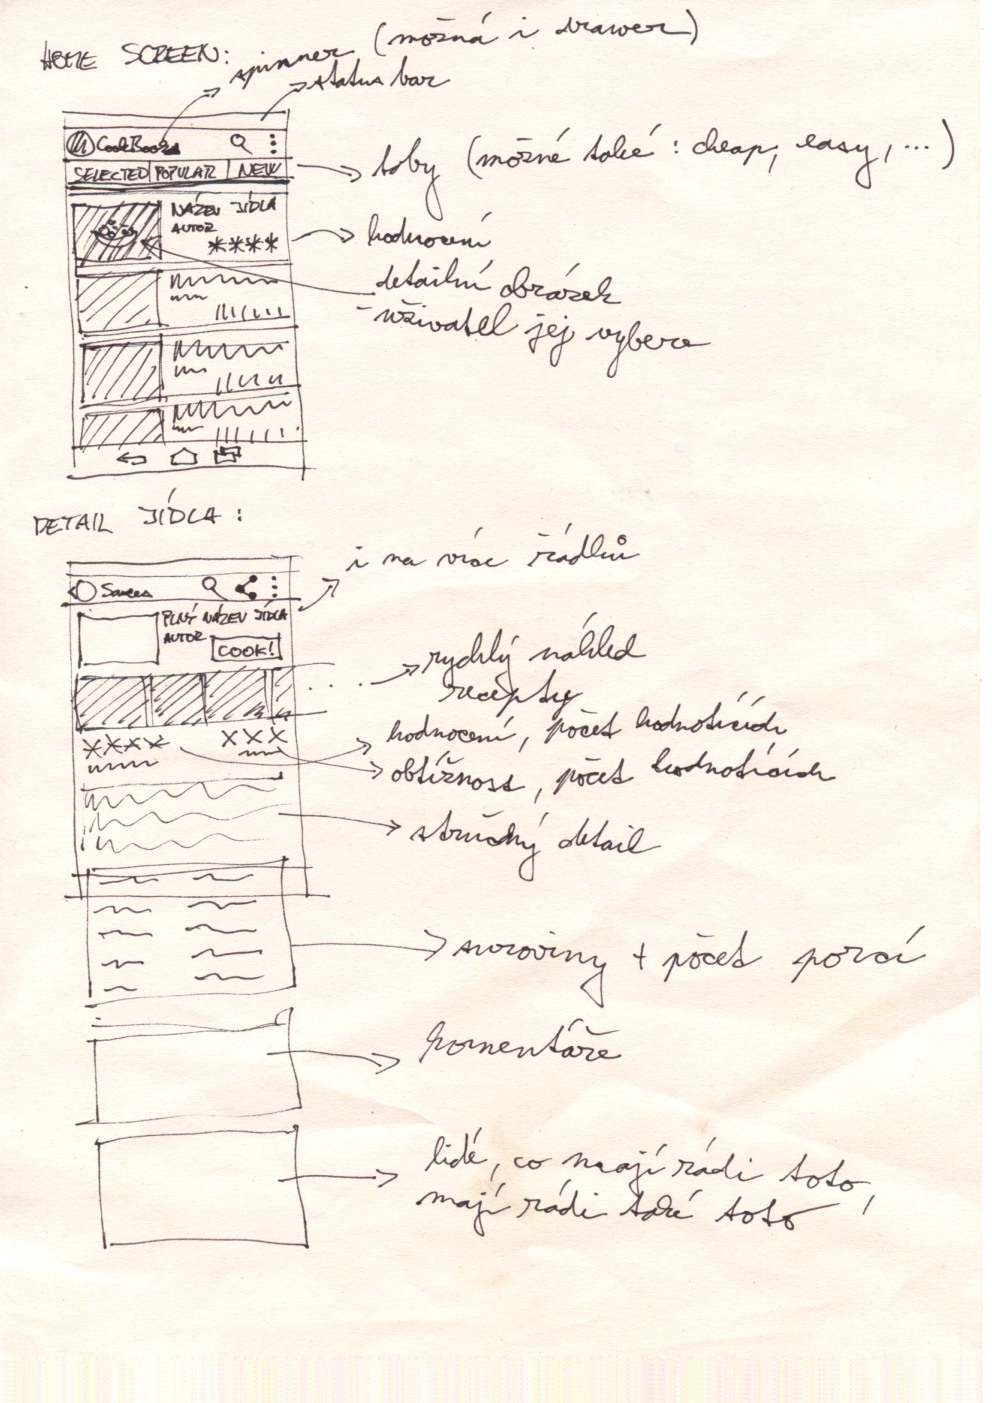 HOME SCREEN:
spinner (možná i drawer)
status bar
CookBook
SELECTED POPULAR NEW
taby (možné také: cheap, easy, ...)
NÁZEV JÍDLA
AUTOR
hodnocení
detailní obrázek
- uživatel jej vybere
DETAIL JÍDLA:
i na více řádků
PLNÝ NÁZEV JÍDLA
AUTOR
COOK!
rychlý náhled
receptu
hodnocení, počet hodnotících
obtížnost, počet hodnotících
stručný detail
suroviny + počet porcí
komentáře
lidé, co mají rádi toto,
mají rádi také toto